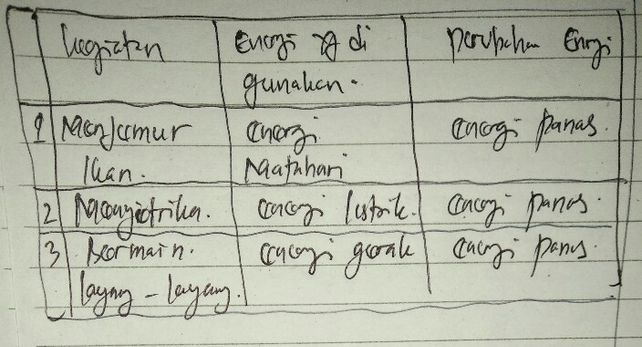 kegiatan Energi yg di Perubahan Energi
gunakan.
1 Menjemur energi energi panas.
Ikan. Matahari
2 Menyetrika. energi listrik. energi panas.
3 Bermain. energi gerak energi panas.
layang - layang.